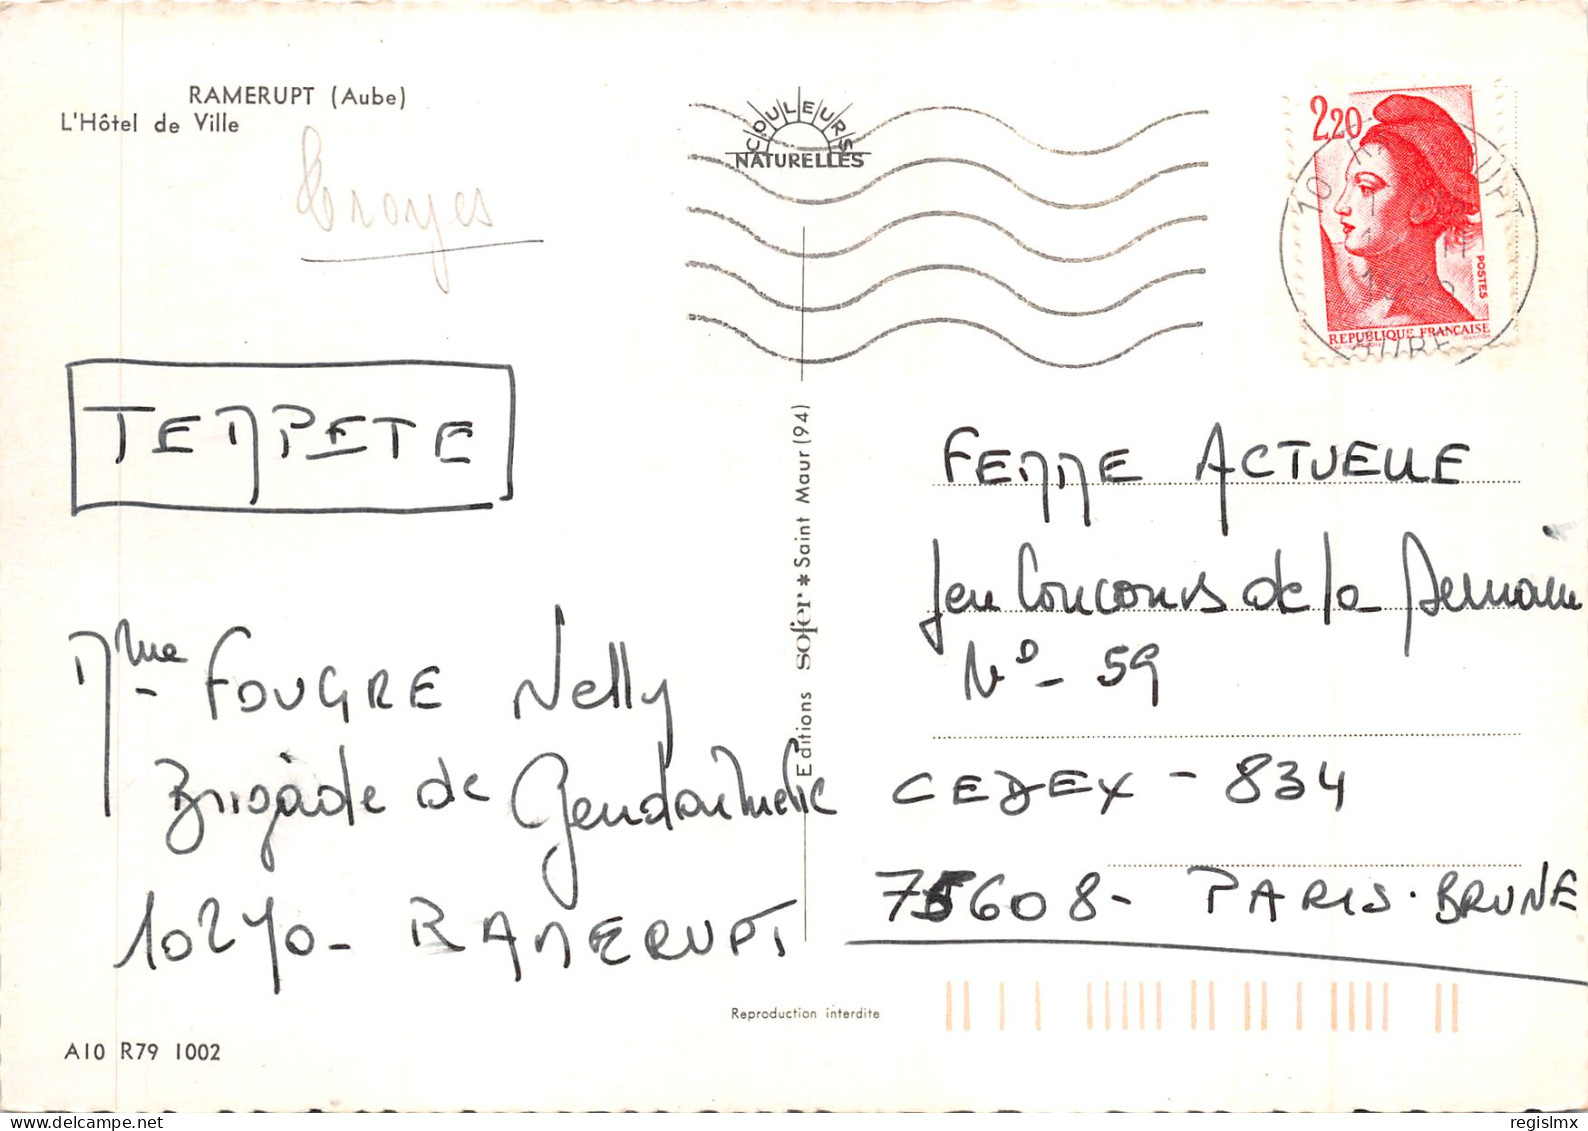 RAMERUPT (Aube)
L'Hôtel de Ville
Troyes
COULEURS
NATURELLES
2,20
POSTES
REPUBLIQUE FRANÇAISE
TEMPETE
Mme FOUGRE Nelly
Brigade de Gendarmerie
10240 - RAMERUPT
Editions sofer * Saint Maur (94)
FEMME ACTUELLE
Jeu Concours de la Semaine
N° - 59
CEDEX - 834
75608 - PARIS. BRUNE
Reproduction interdite
A10 R79 1002
delcampe.net
regislmx